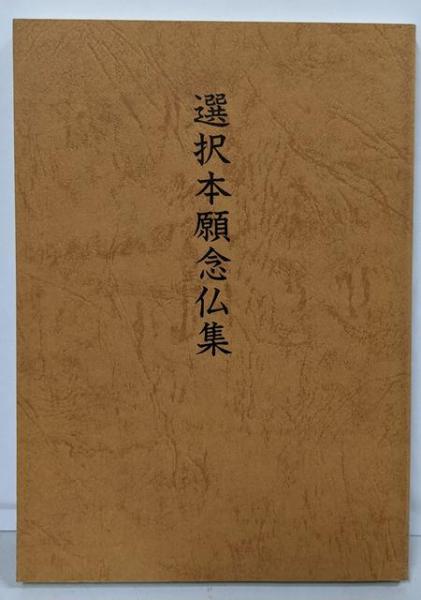 選択本願念仏集